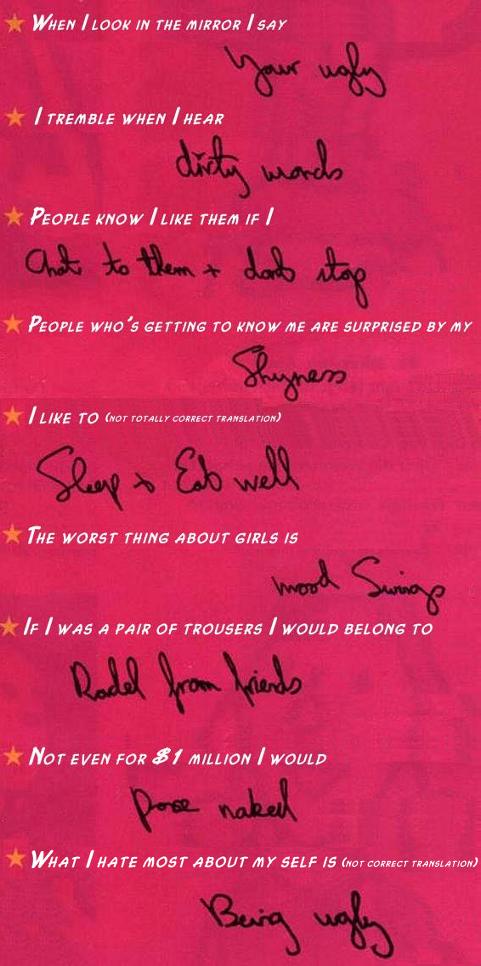 WHEN I LOOK IN THE MIRROR I SAY
Your ugly
I TREMBLE WHEN I HEAR
dirty words
PEOPLE KNOW I LIKE THEM IF I
Chat to them + dont stop
PEOPLE WHO'S GETTING TO KNOW ME ARE SURPRISED BY MY
Shyness
I LIKE TO (NOT TOTALLY CORRECT TRANSLATION)
Sleep + Eat well
THE WORST THING ABOUT GIRLS IS
mood Swings
IF I WAS A PAIR OF TROUSERS I WOULD BELONG TO
Rachel from friends
NOT EVEN FOR $1 MILLION I WOULD
pose naked
WHAT I HATE MOST ABOUT MY SELF IS (NOT CORRECT TRANSLATION)
Being ugly